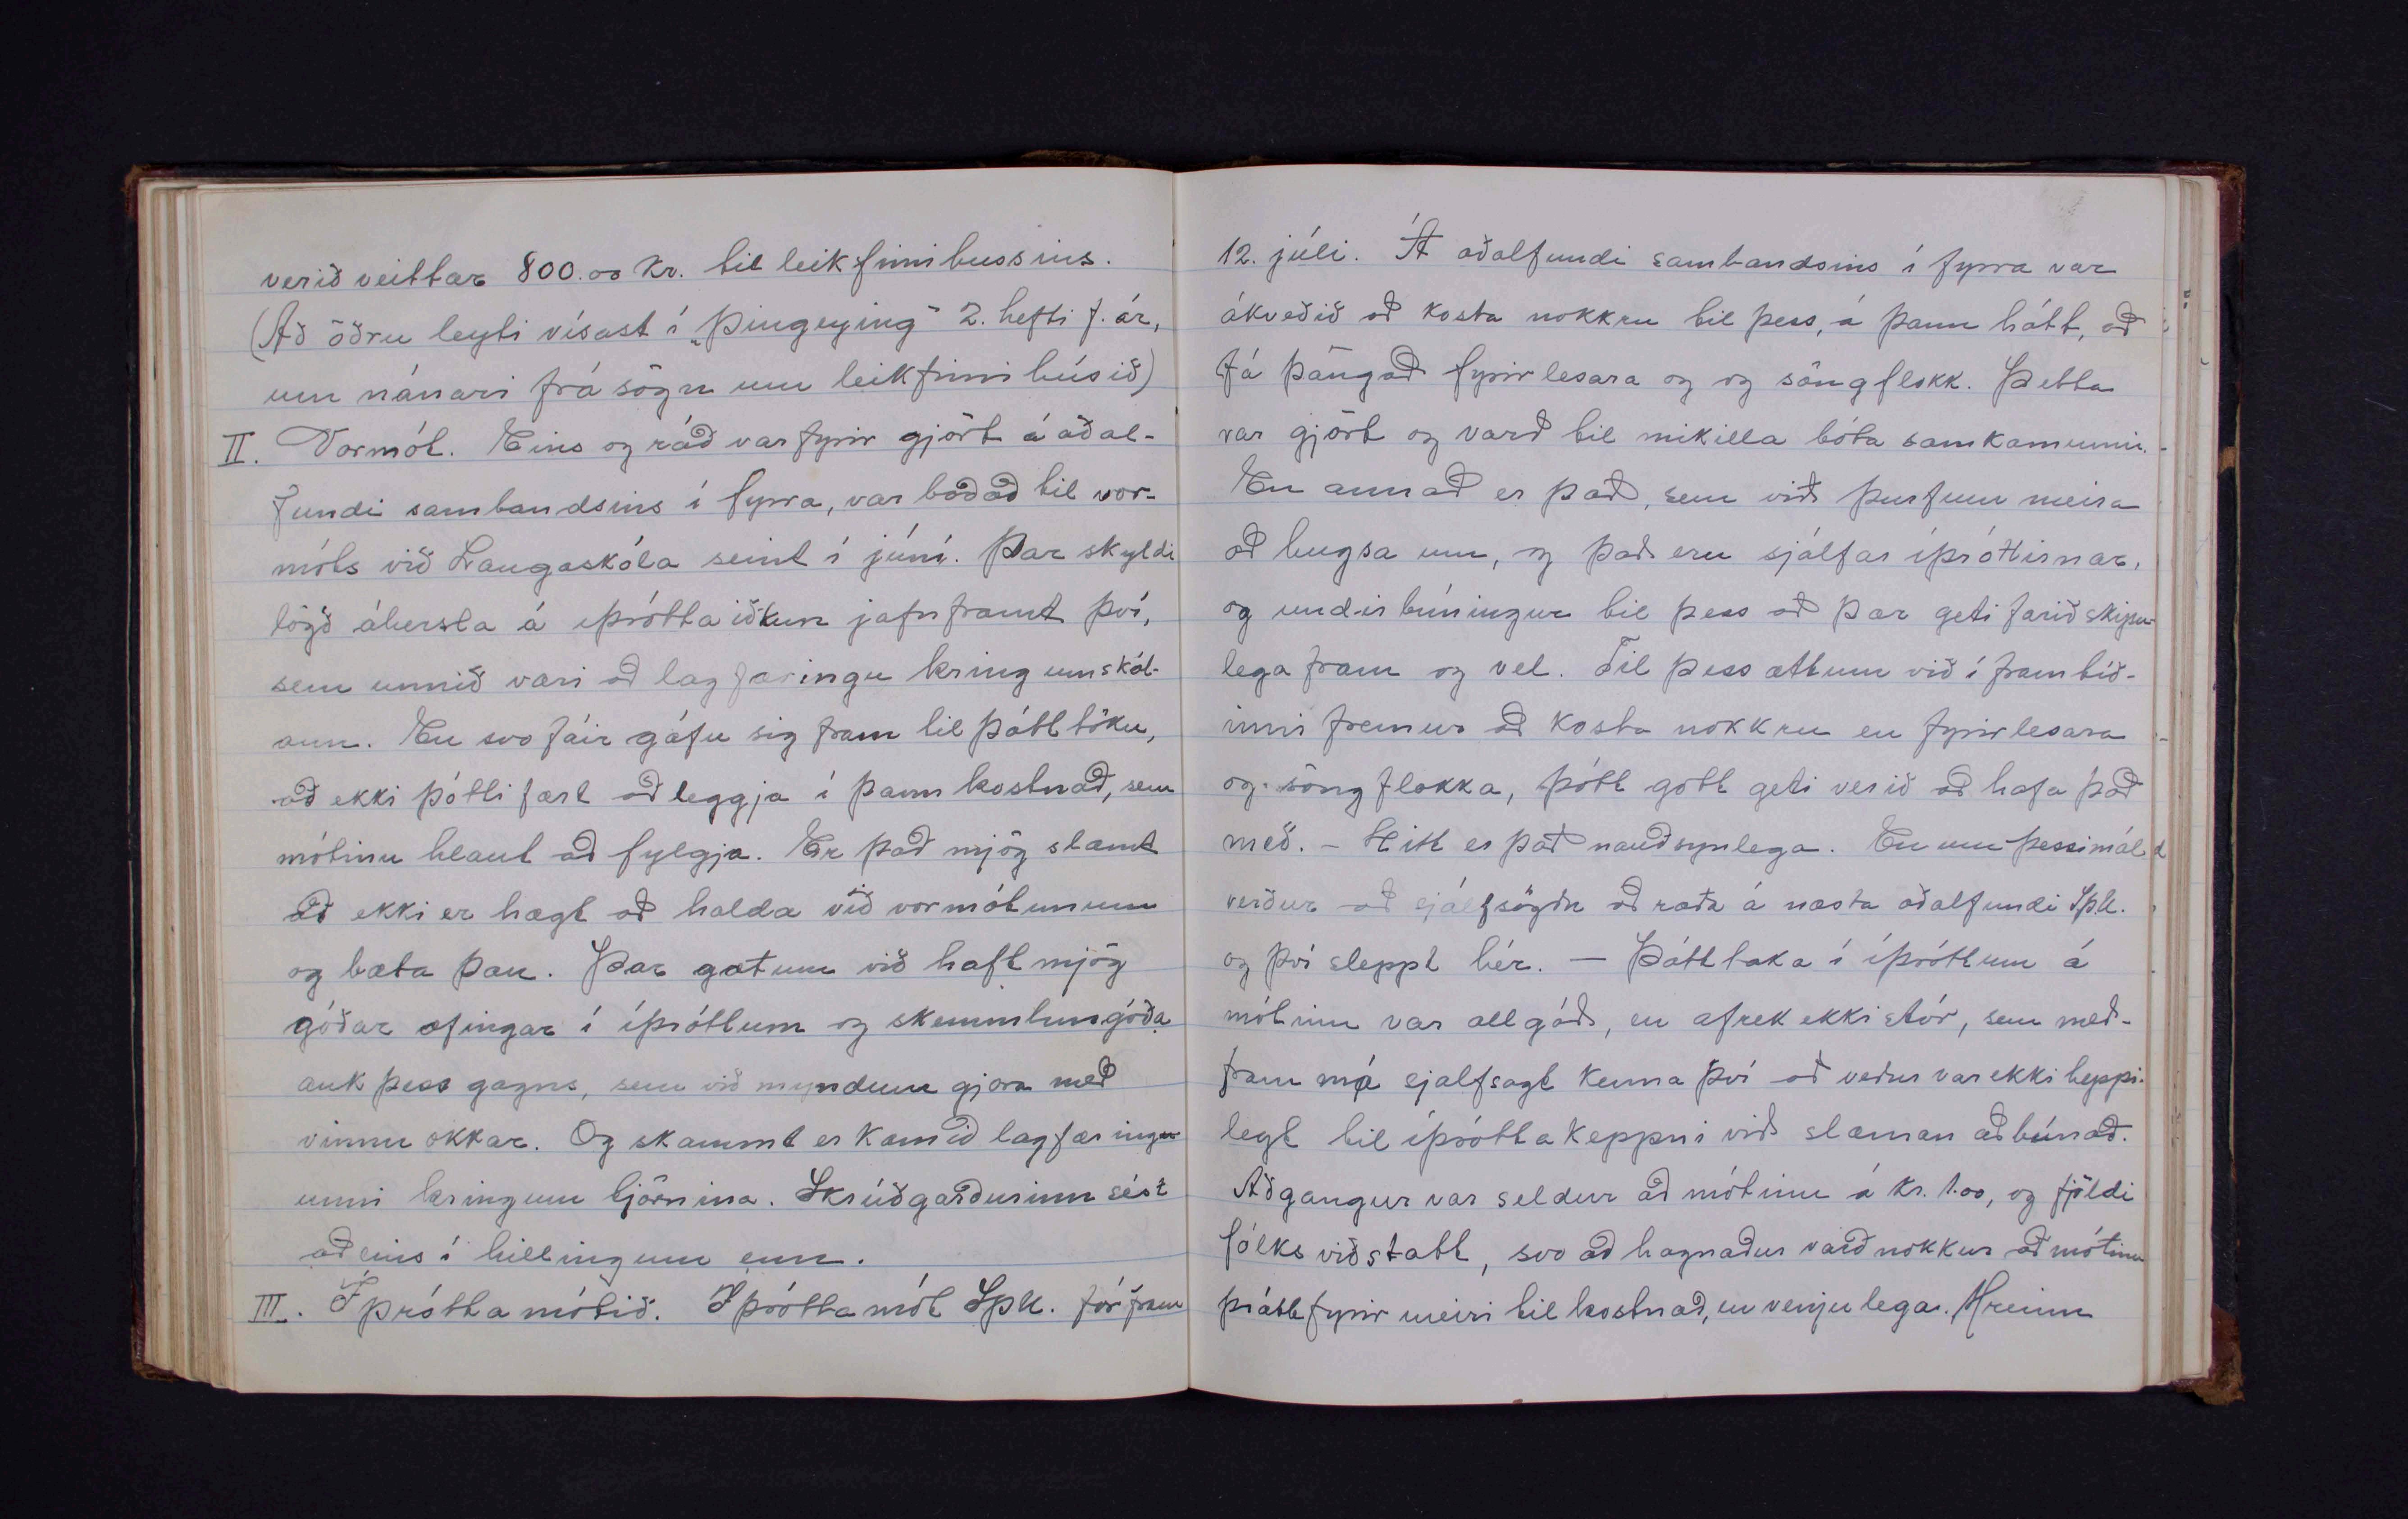 verið veittar 800.00 kr. til leikfimihussins.
(Að öðru leyti vísast í „Þingeying" 2. hefti f. ár,
um nánari frásögn um leikfimihúsið)
II. Vormót. Eins og ráð var fyrir gjört á aðal-
fundi sambandsins í fyrra, var boðað til vor-
móts við Laugaskóla seint í júní. Þar skyldi
lögð áhersla á íþróttaiðkun jafnframt því,
sem unnið væri að lagfæringu kring um skól-
ann. En svo fáir gáfu sig fram til þátttöku,
að ekki þótti fært að leggja í þann kostnað, sem
mótinu hlaut að fylgja. Er það mjög slæmt
að ekki er hægt að halda við vormótunum
og bæta þau. Þar gætum við haft mjög
góðar æfingar í íþróttum og skemmtun góða
auk þess gagns, sem við myndum gjöra með
vinnu okkar. Og skammt er komið lagfæringu
unni kringum tjörnina. Skrúðgarðurinn sést
aðeins í hillingum enn.
III. Íþróttamótið. Íþróttamót S.þ.U. fór fram
12. júlí. Á aðalfundi sambandsins í fyrra var
ákveðið að kosta nokkru til þess, á þann hátt, að
fá þangað fyrirlesara og og söngflokk. Þetta
var gjört og varð til mikilla bóta samkomunni.
En annað er það, sem við þurfum meira
að hugsa um, og það eru sjálfar íþróttirnar,
og undirbúningur til þess að þær geti farið skipu-
lega fram og vel. Til þess ættum við í framtíð-
inni fremur að kosta nokkru en fyrirlesara
og söngflokka, þótt gott geti verið að hafa það
með. – Hitt er það nauðsynlega. En um þessi mál
verður að sjálfsögðu að ræða á næsta aðalfundi S.þ.U.
og því sleppt hér. — Þátttaka í íþróttum á
mótinu var allgóð, en afrek ekki stór, sem með-
fram má sjálfsagt kenna því að veður var ekki heppi-
legt til íþróttakeppni við slæman aðbúnað.
Aðgangur var seldur að mótinu á kr. 1.00, og fjöldi
fólks viðstatt, svo að hagnaður varð nokkur að mótinu
þrátt fyrir meiri tilkostnað, en venjulega. Hreinn